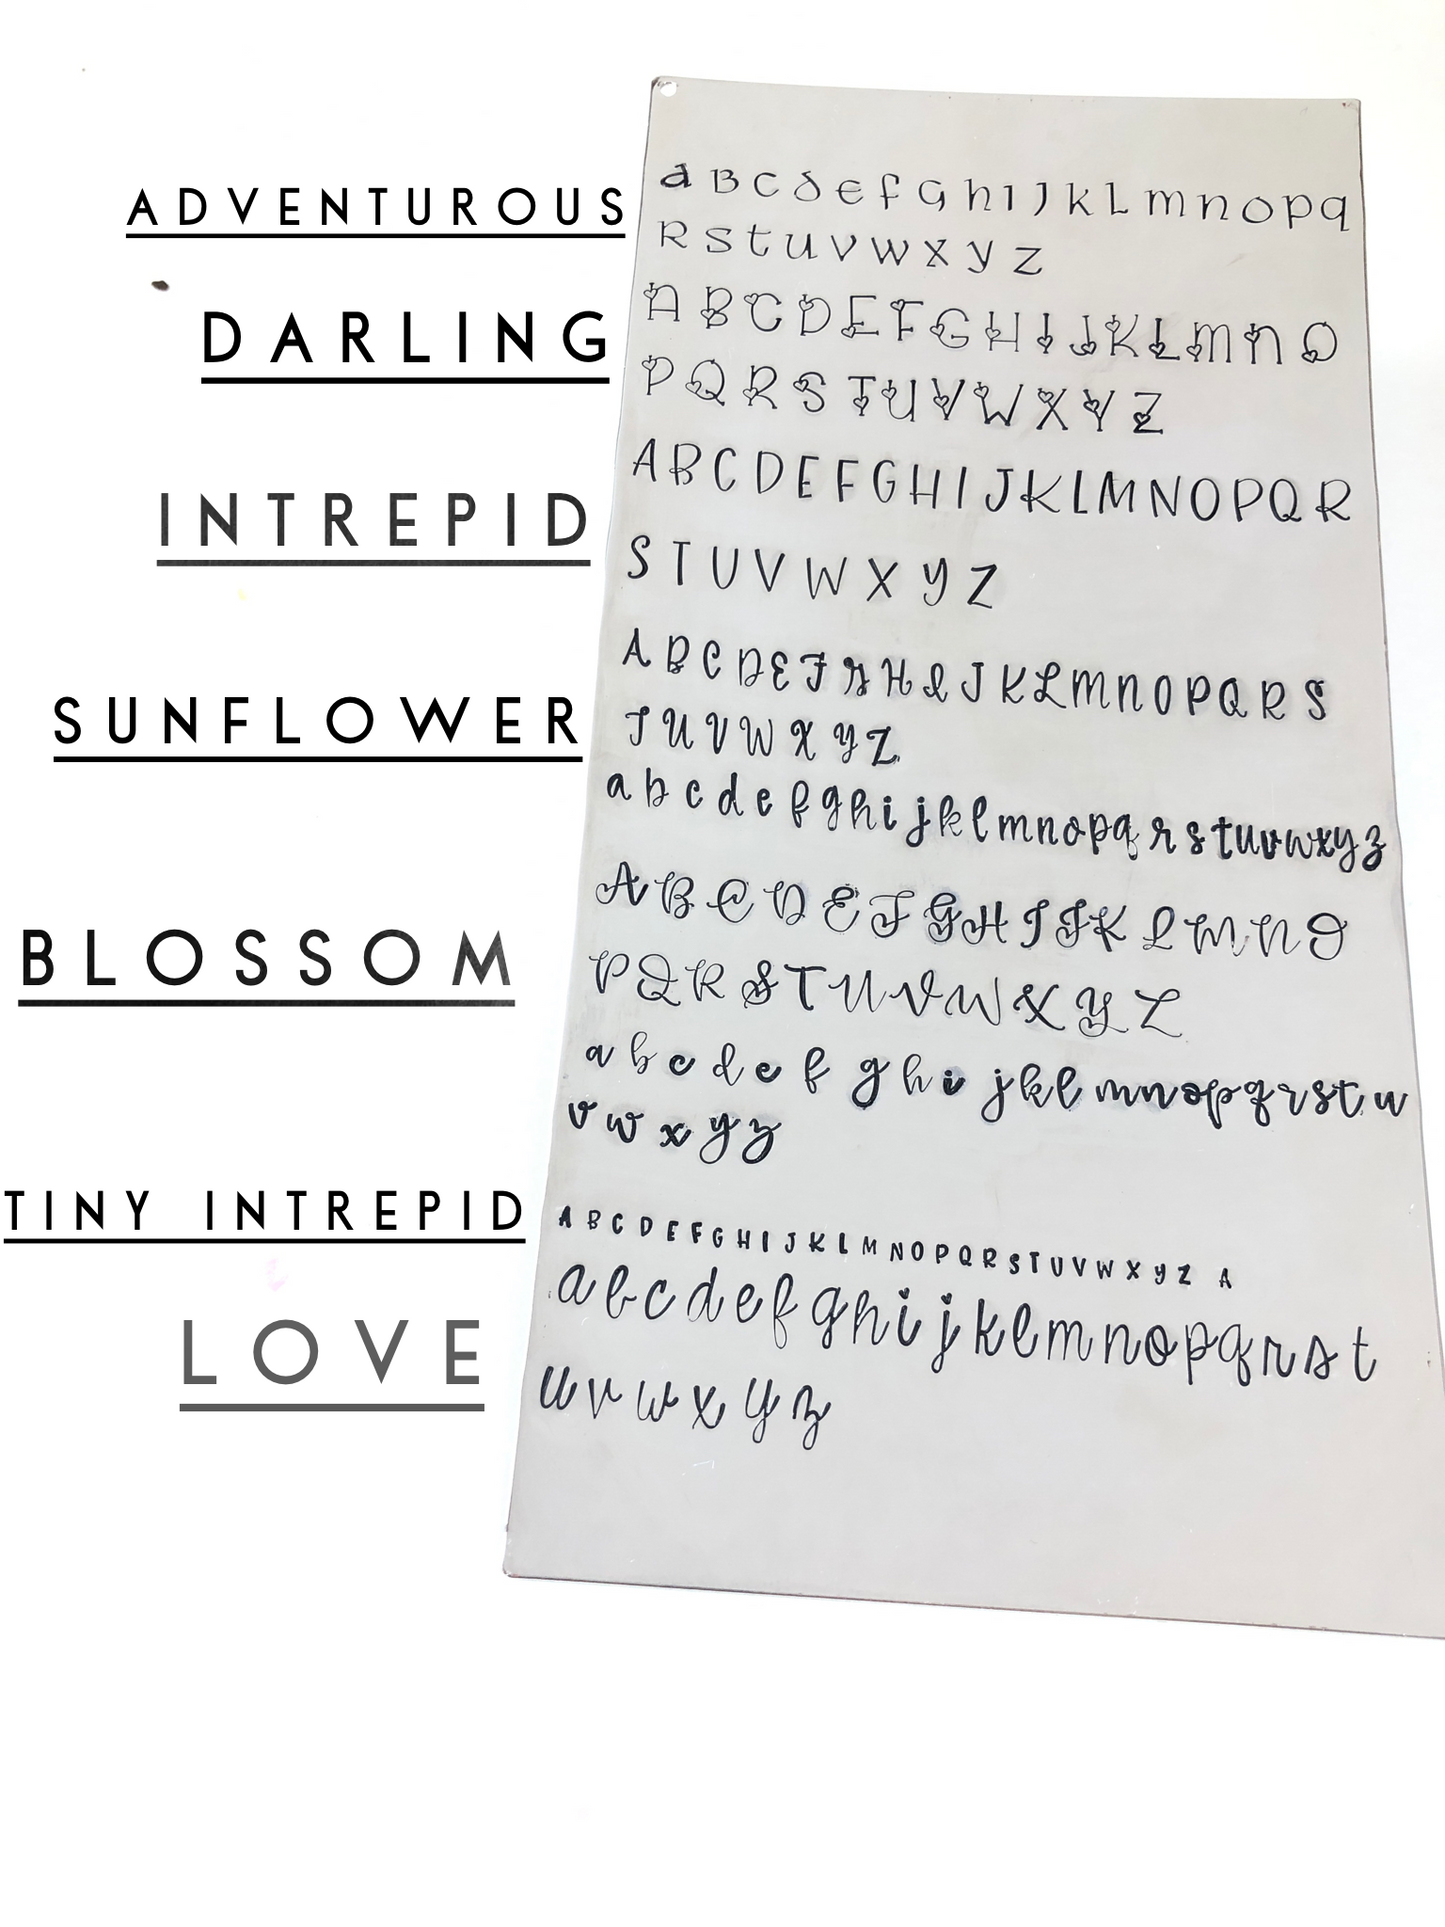 ADVENTUROUS
a B c d e f G h I J k L m n o p q
R s t u v w x y z
DARLING
A B C D E F G H I J K L m n O
P Q R S T U V W X Y Z
INTREPID
A B C D E F G H I J K L M N O P Q R
S T U V W X Y Z
SUNFLOWER
A B C D E F G H I J K L M N O P Q R S
T U V W X Y Z
a b c d e f g h i j k l m n o p q r s t u v w x y z
BLOSSOM
A B C D E F G H I J K L M N O
P Q R S T U V W X Y Z
a b c d e f g h i j k l m n o p q r s t u
v w x y z
TINY INTREPID
A B C D E F G H I J K L M N O P Q R S T U V W X Y Z A
LOVE
a b c d e f g h i j k l m n o p q r s t
u v w x y z